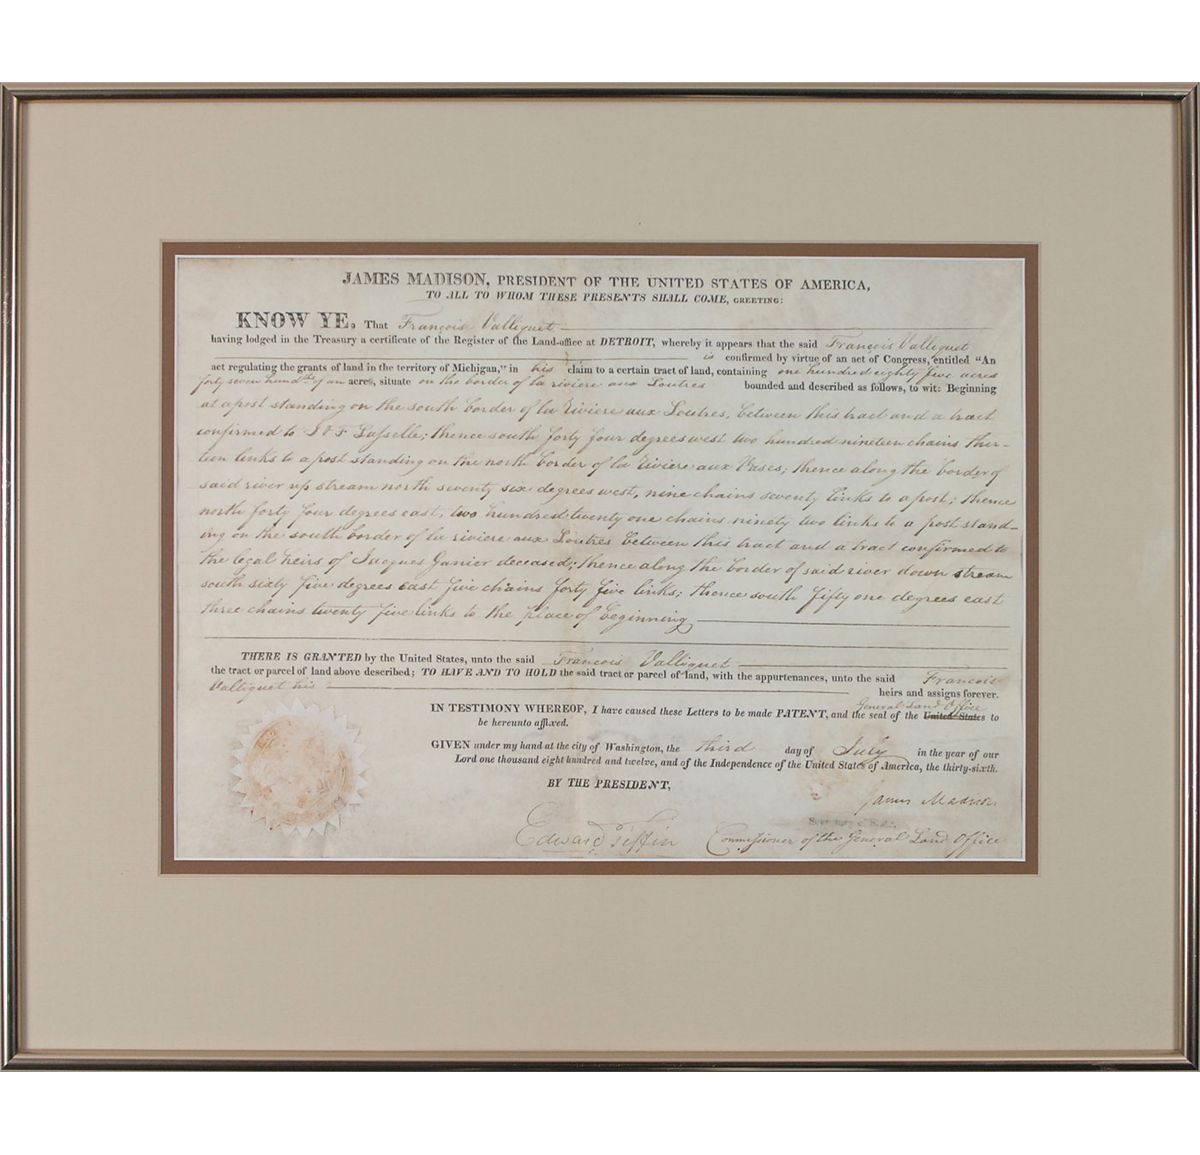 JAMES MADISON, PRESIDENT OF THE UNITED STATES OF AMERICA,
TO ALL TO WHOM THESE PRESENTS SHALL COME, GREETING:
KNOW YE, That François Valliquet
having lodged in the Treasury a certificate of the Register of the Land-office at DETROIT, whereby it appears that the said François Valliquet
is confirmed by virtue of an act of Congress, entitled “An
act regulating the grants of land in the territory of Michigan,” in his claim to a certain tract of land, containing one hundred eighty five acres
forty seven hundths of an acres, situate on the border of la riviere aux Loutres bounded and described as follows, to wit: Beginning
at a post standing on the south border of la Riviere aux Loutres, between this tract and a tract
confirmed to J & F Lasselle; thence south forty four degrees west two hundred nineteen chains thir-
teen links to a post standing on the north border of la Riviere aux Vases; thence along the border of
said river up stream north seventy six degrees west, nine chains seventy links to a post; thence
north forty four degrees east, two hundred twenty one chains ninety two links to a post stand-
ing on the south border of la riviere aux Loutres between this tract and a tract confirmed to
the legal heirs of Jacques Ganier deceased; thence along the border of said river down stream
south sixty five degrees east five chains forty five links; thence south fifty one degrees east
three chains twenty five links to the place of beginning
THERE IS GRANTED by the United States, unto the said François Valliquet
the tract or parcel of land above described; TO HAVE AND TO HOLD the said tract or parcel of land, with the appurtenances, unto the said François
Valliquet his heirs and assigns forever.
General Land Office
IN TESTIMONY WHEREOF, I have caused these Letters to be made PATENT, and the seal of the United States to
be hereunto affixed.
GIVEN under my hand at the city of Washington, the third day of July in the year of our
Lord one thousand eight hundred and twelve, and of the Independence of the United States of America, the thirty-sixth.
BY THE PRESIDENT,
James Madison
Edward Tiffin Commissioner of the General Land Office